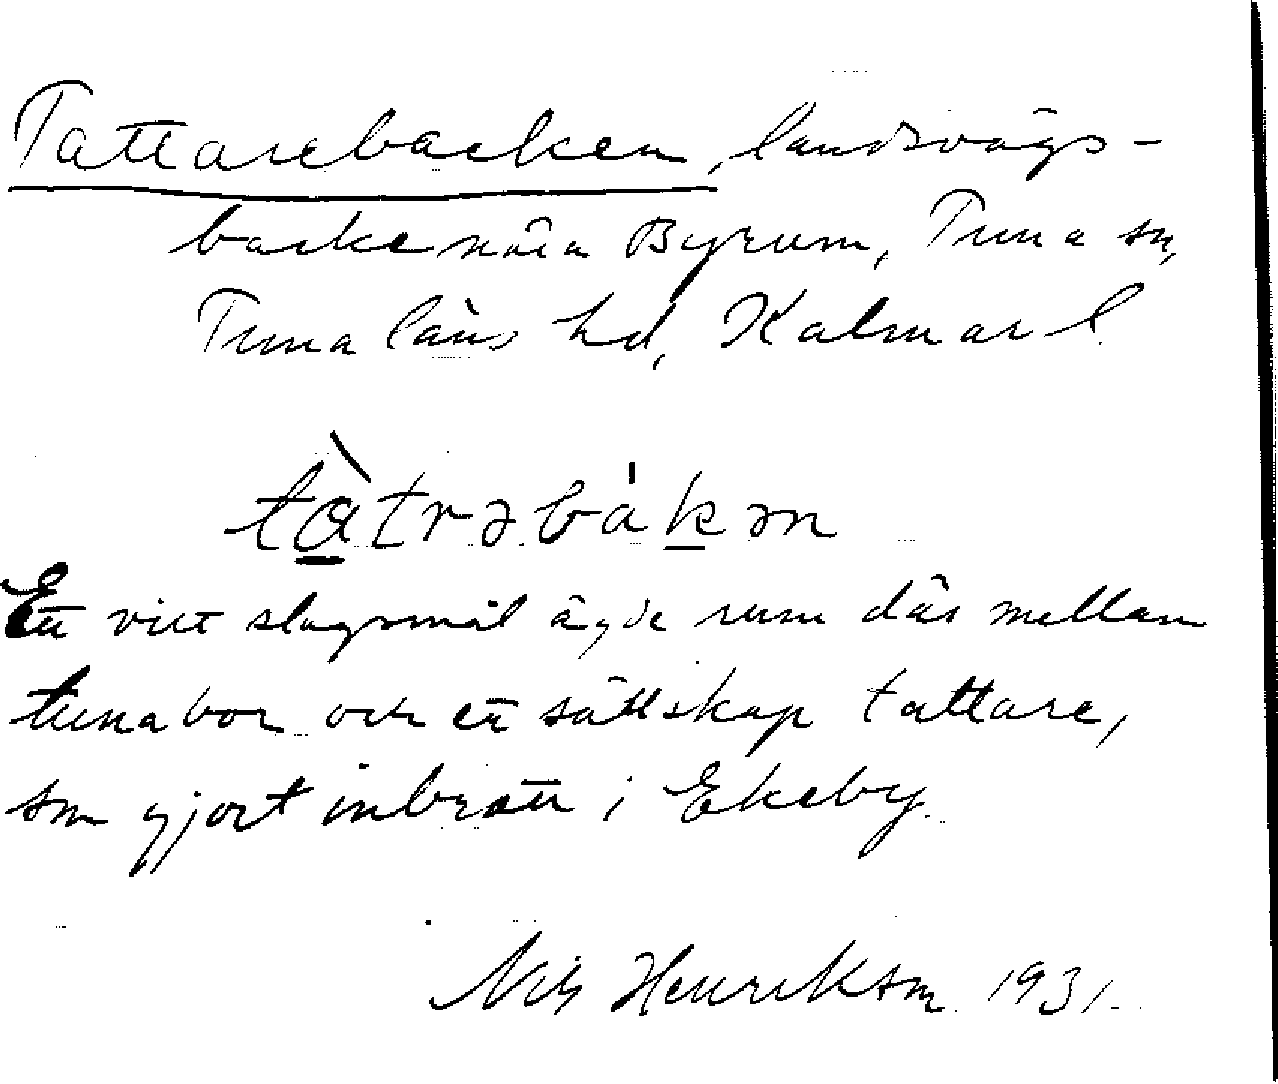 Tattarebacken, landsvägs-
backe nära Byrum, Tuna sn,
Tunaläns hd, Kalmar l.
tàtrəbákən
Ett vilt slagsmål ägde rum där mellan
tunabor och ett sällskap tattare,
som gjort inbrott i Ekeby.
Nils Henrikson 1931.